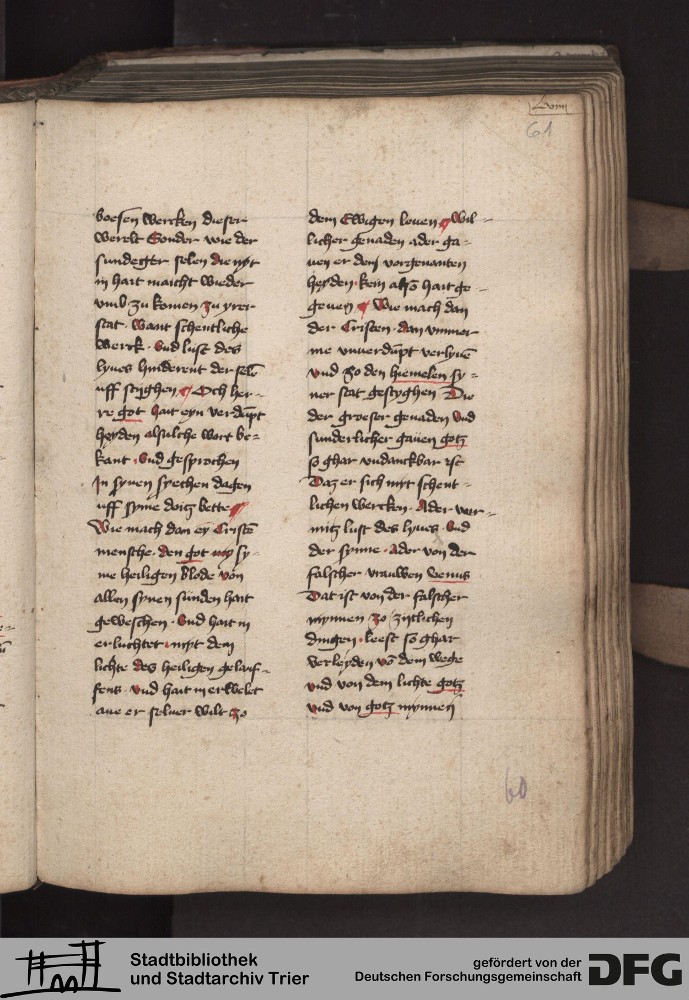 61
boesen wercken dieser
werelt Sonder wie der
sundegter selen die nyt
in hait maicht wieder
vmb zu komen zu yrer
stat · Want schentliche
werck · Vnd lust des
lyues hinderent der selē
uff styghen ¶ Och her-
re got hait eyn verdāpt
heyden alsulche wort be-
kant · Vnd gesprochen
In synen syechen dagen
uff syme doitz bette ¶
Wie mach dan ey Cristē
mensche · den got my sy-
me heiligen blode von
allen synen sunden hait
geweschen · Vnd hait in
erluchtet · myt dem
lichte des heiligen gelauf-
fens · vnd hait in erwelet
aue er seluer wilt zo
dem Ewigen leuen ¶ Wil-
licher genaden ader ga-
uen er dem vorgenanten
heyden · kein also hait ge-
geuen ¶ Wie mach dan
der Cristen · dan vmmer
me vnuerdāpt verlyuē
vnd zo den hiemelen sy-
ner stat gestyghen Die
der groeser genaden Vnd
sunderlicher gauen gotz
so ghar vndanckbar ist
Daz er sich myt schent-
lichen wercken · Ader ver-
mitz lust des lyues · Vnd
der synne · Ader von der
falscher vrauwen venus
Dat ist von der falscher
mynnen zo zytlichen
dingen · leest so ghar
verleyden vō dem wege
vnd von dem lichte gotz
vnd von gotz mynnen
60
Stadtbibliothek
und Stadtarchiv Trier
gefördert von der
Deutschen Forschungsgemeinschaft
DFG